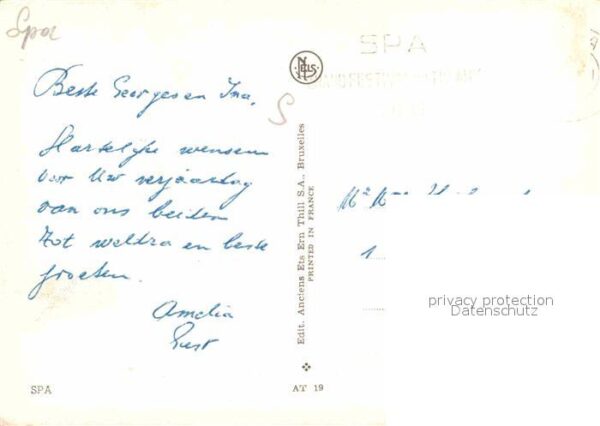 Spa
SPA
NELS
S
Beste Georges en Ina,
Hartelijke wensen
voor Uw verjaardag
van ons beiden
Tot weldra en beste
groeten.
Amelia
Gust
Edit. Anciens Ets Ern Thill S.A., Bruxelles
PRINTED IN FRANCE
privacy protection
Datenschutz
SPA
AT 19